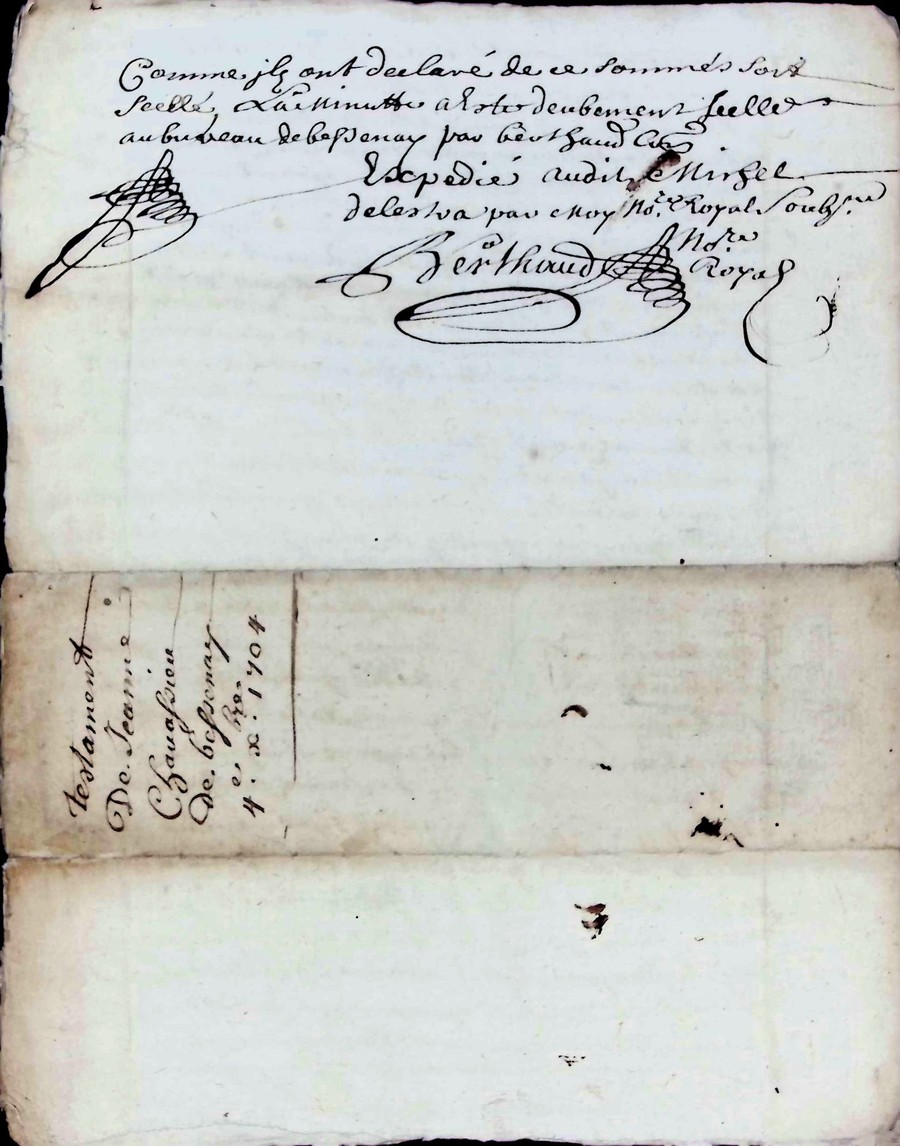 Comme ilz ont declaré de ce sommés soit
scellé, La Minutte a Esté deubement scellé
au bureau de bessenay par berthaud
Expedié audit Michel
delestra par moy No.re Royal Soubs.né
Berthaud No.re
Royal
testament
De Jeanne
Chavassieu
de bessenay
4.e xbre 1704